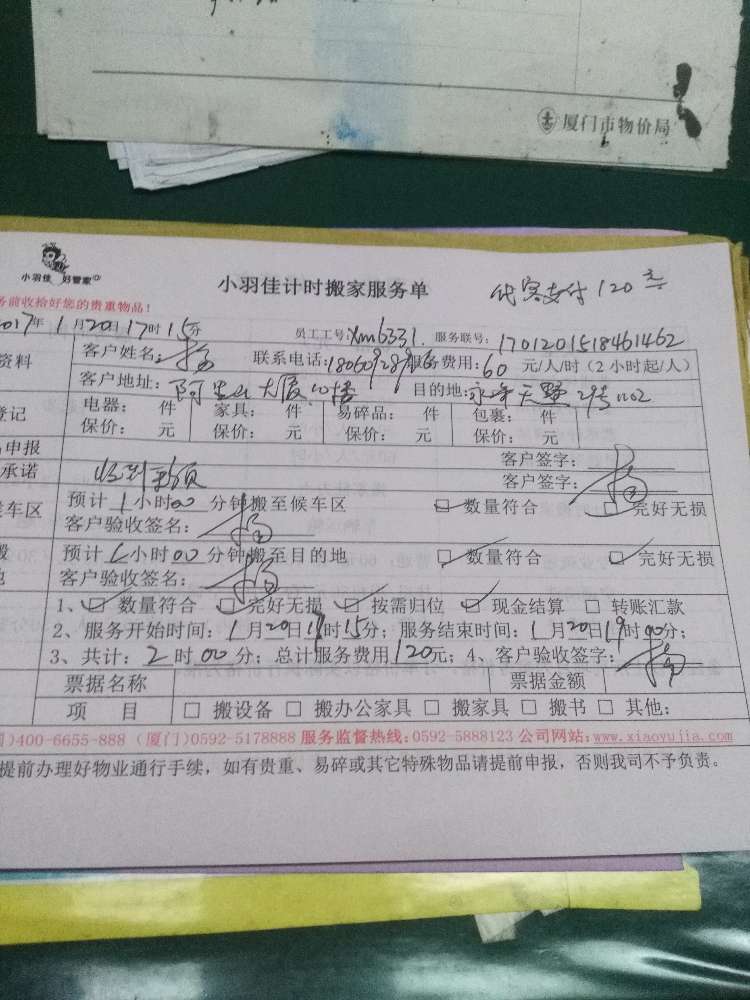 厦门市物价局
小羽佳 好管家
小羽佳计时搬家服务单 代客支付120元
务前收拾好您的贵重物品！
2017年1月20日17时15分 员工工号：xm6331. 服务联号：1701201518461462
资料 客户姓名：杨 联系电话： 服务费用：60 元/人/时（2小时起/人）
客户地址： 大厦 目的地： 1102
登记 电器： 件 家具： 件 易碎品： 件 包裹： 件
保价： 元 保价： 元 保价： 元 保价： 元
申报 客户签字：
承诺 客户签字：杨
候车区 预计1小时00分钟搬至候车区 数量符合 完好无损
客户验收签名：杨
预计1小时00分钟搬至目的地 数量符合 完好无损
客户验收签名：杨
1、 数量符合 完好无损 按需归位 现金结算 转账汇款
2、服务开始时间：1月20日17时15分；服务结束时间：1月20日19时00分；
3、共计：2时00分；总计服务费用120元；4、客户验收签字：杨
票据名称 票据金额
项 目 □ 搬设备 □ 搬办公家具 □ 搬家具 □ 搬书 □ 其他：
)400-6655-888（厦门)0592-5178888 服务监督热线：0592-5888123 公司网站：www.xiaoyujia.com
提前办理好物业通行手续，如有贵重、易碎或其它特殊物品请提前申报，否则我司不予负责。